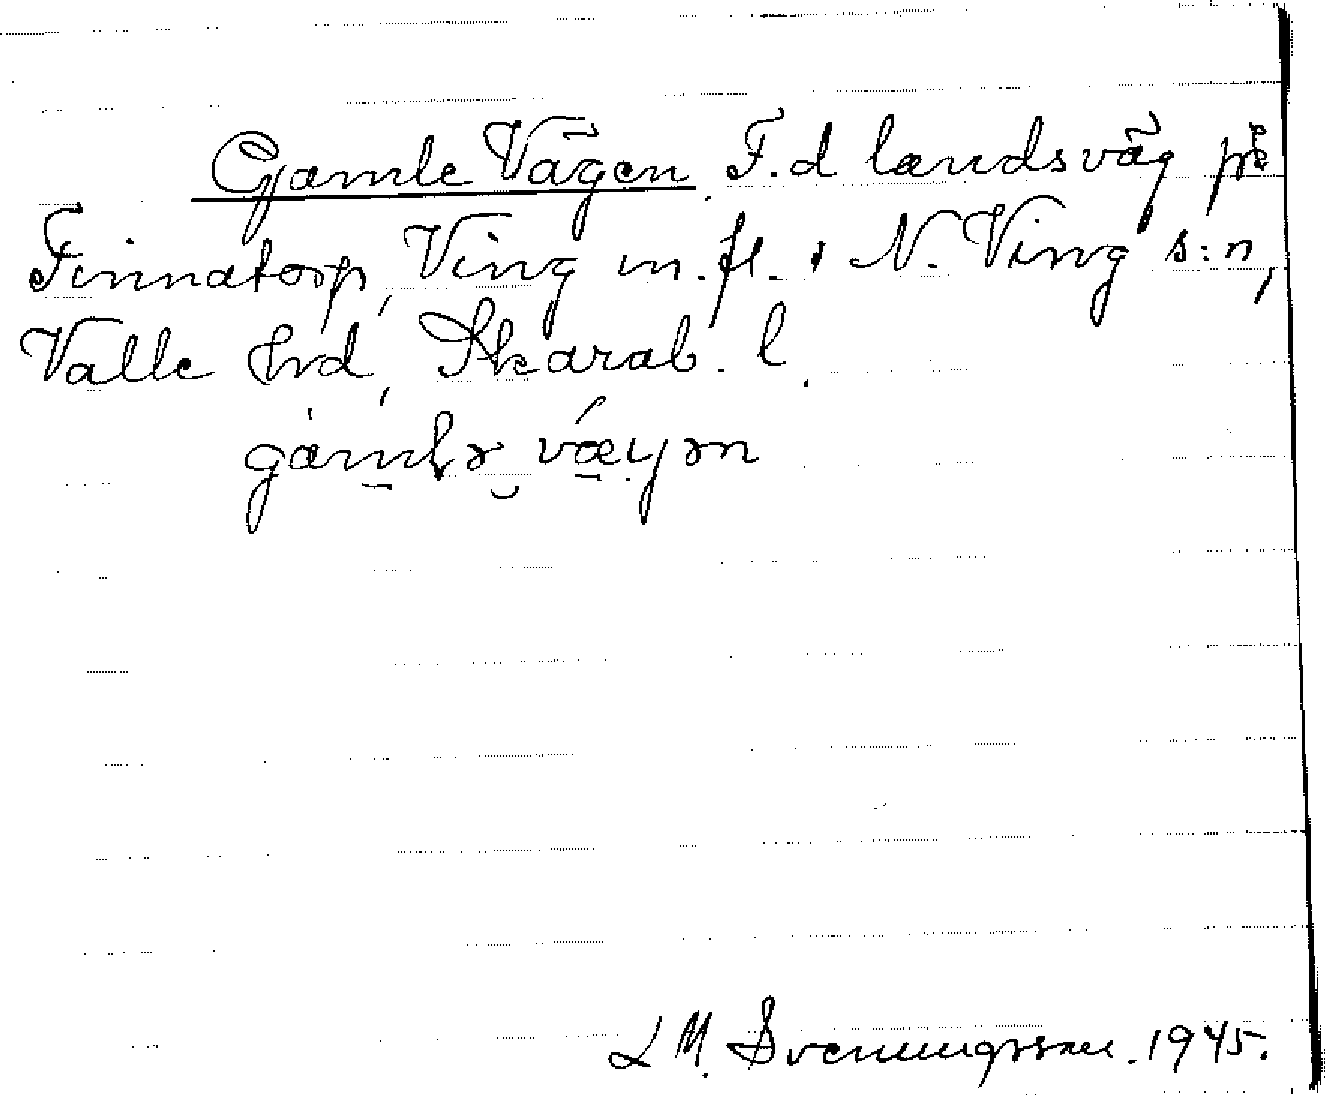 Gamle Vägen. F.d landsväg på
Finnatorp, Ving m.fl. i N. Ving s:n,
Valle hrd, Skarab. l.
gàmlə vǽyən
L M. Svenungsson. 1945.